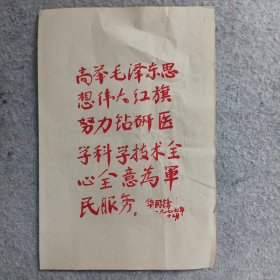 高举毛泽东思
想伟大红旗
努力钻研医
学科学技术全
心全意为军
民服务。华国锋
一九七七年
十二月